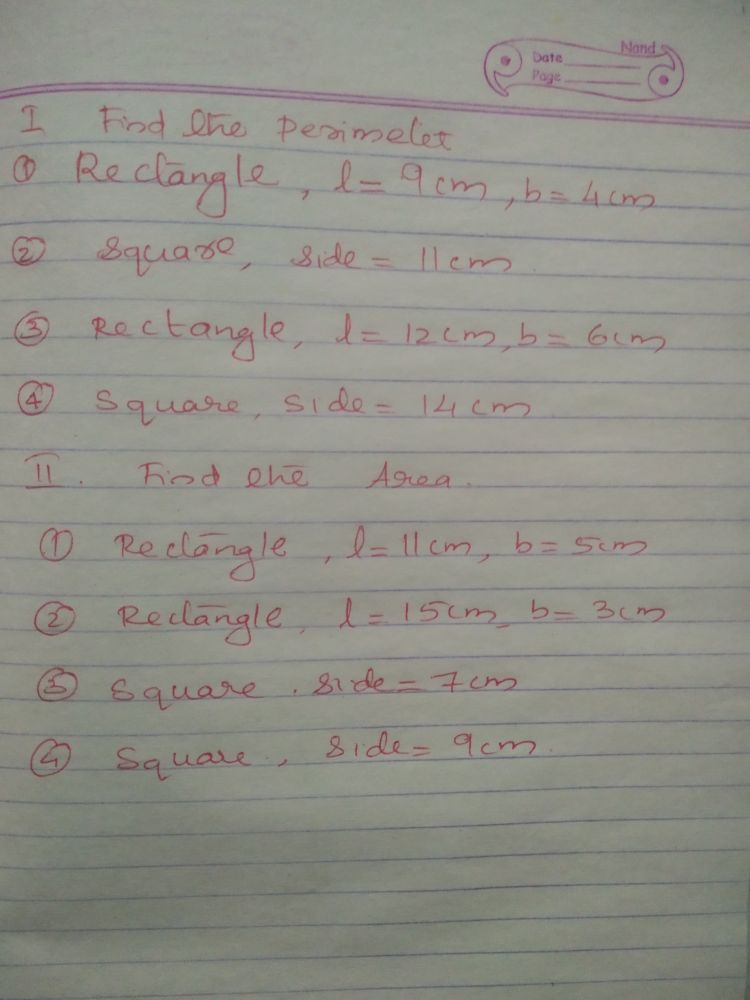 Nand
Date
Page
I Find the Perimeter
① Rectangle, l = 9cm, b = 4cm
② Square, side = 11cm.
③ Rectangle, l = 12cm, b = 6cm
④ Square, side = 14cm
II. Find the Area.
① Rectangle, l = 11cm, b = 5cm
② Rectangle, l = 15cm, b = 3cm
③ Square. side = 7cm
④ Square., side = 9cm.